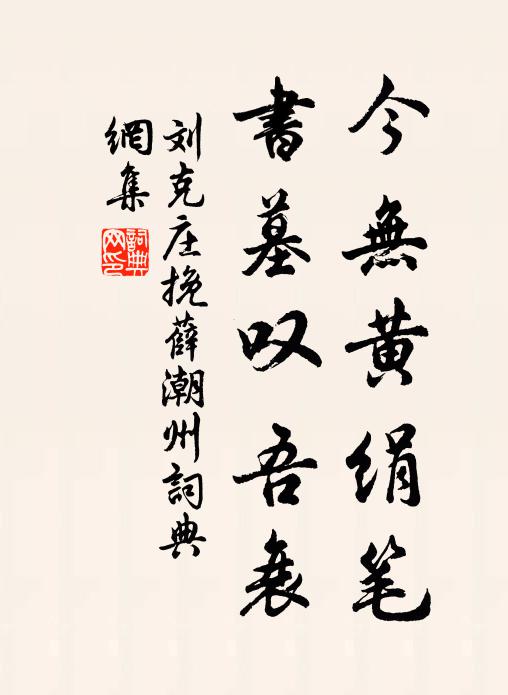 今無黄绢笔
書墓叹吾衰
刘克庄挽薛潮州詞典
網集
詞典
网印